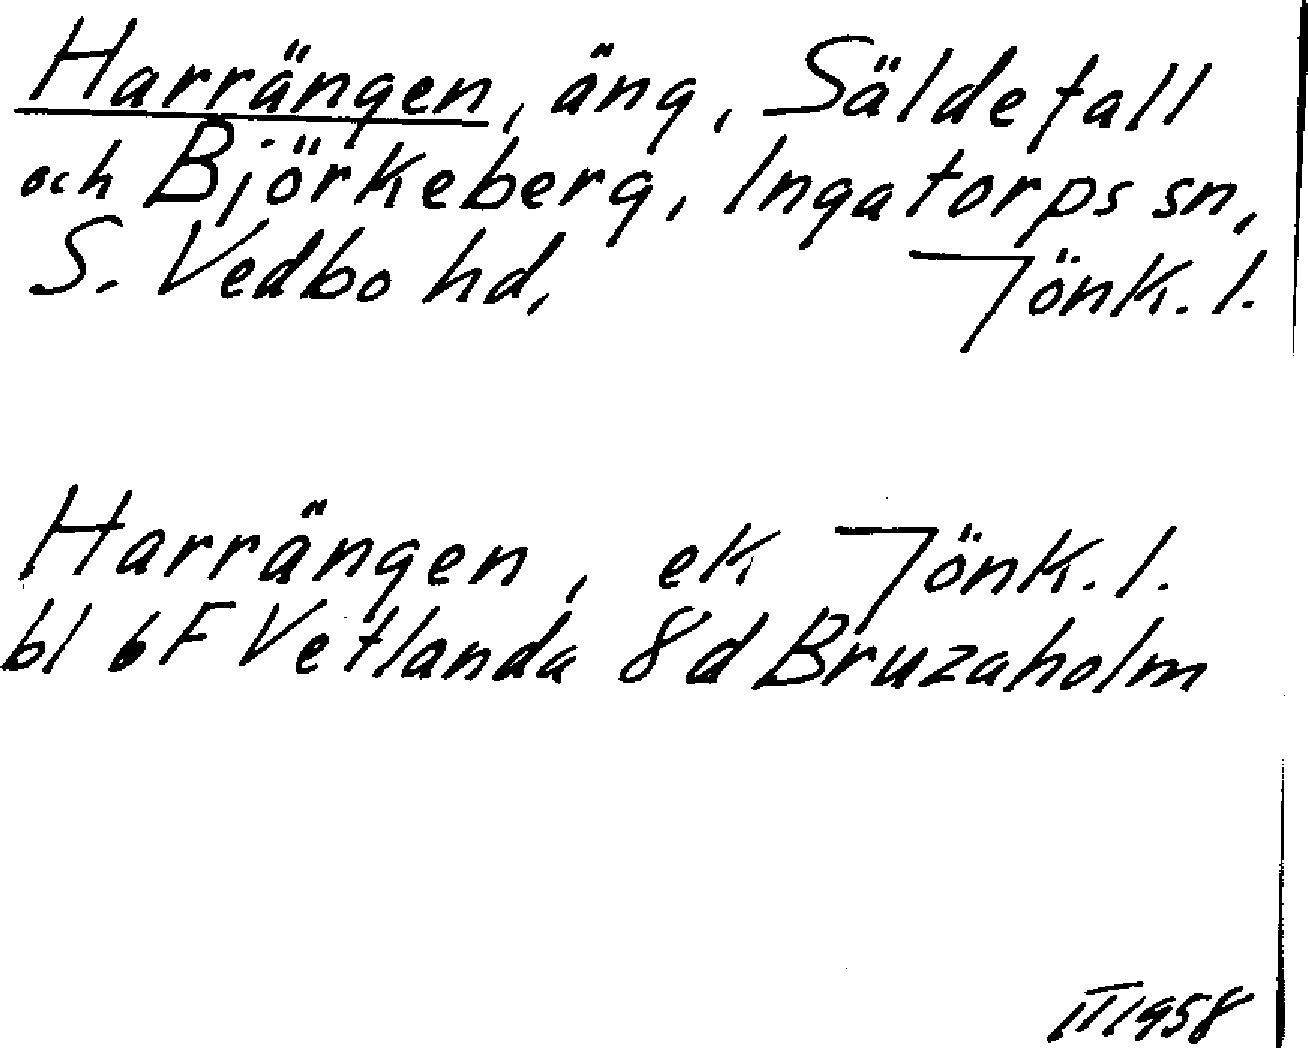 Harrängen, äng, Säldefall
och Björkeberg, Ingatorps sn,
S. Vedbo hd, Jönk. l.
Harrängen, ek Jönk. l.
bl 6F Vetlanda 8d Bruzaholm
1958